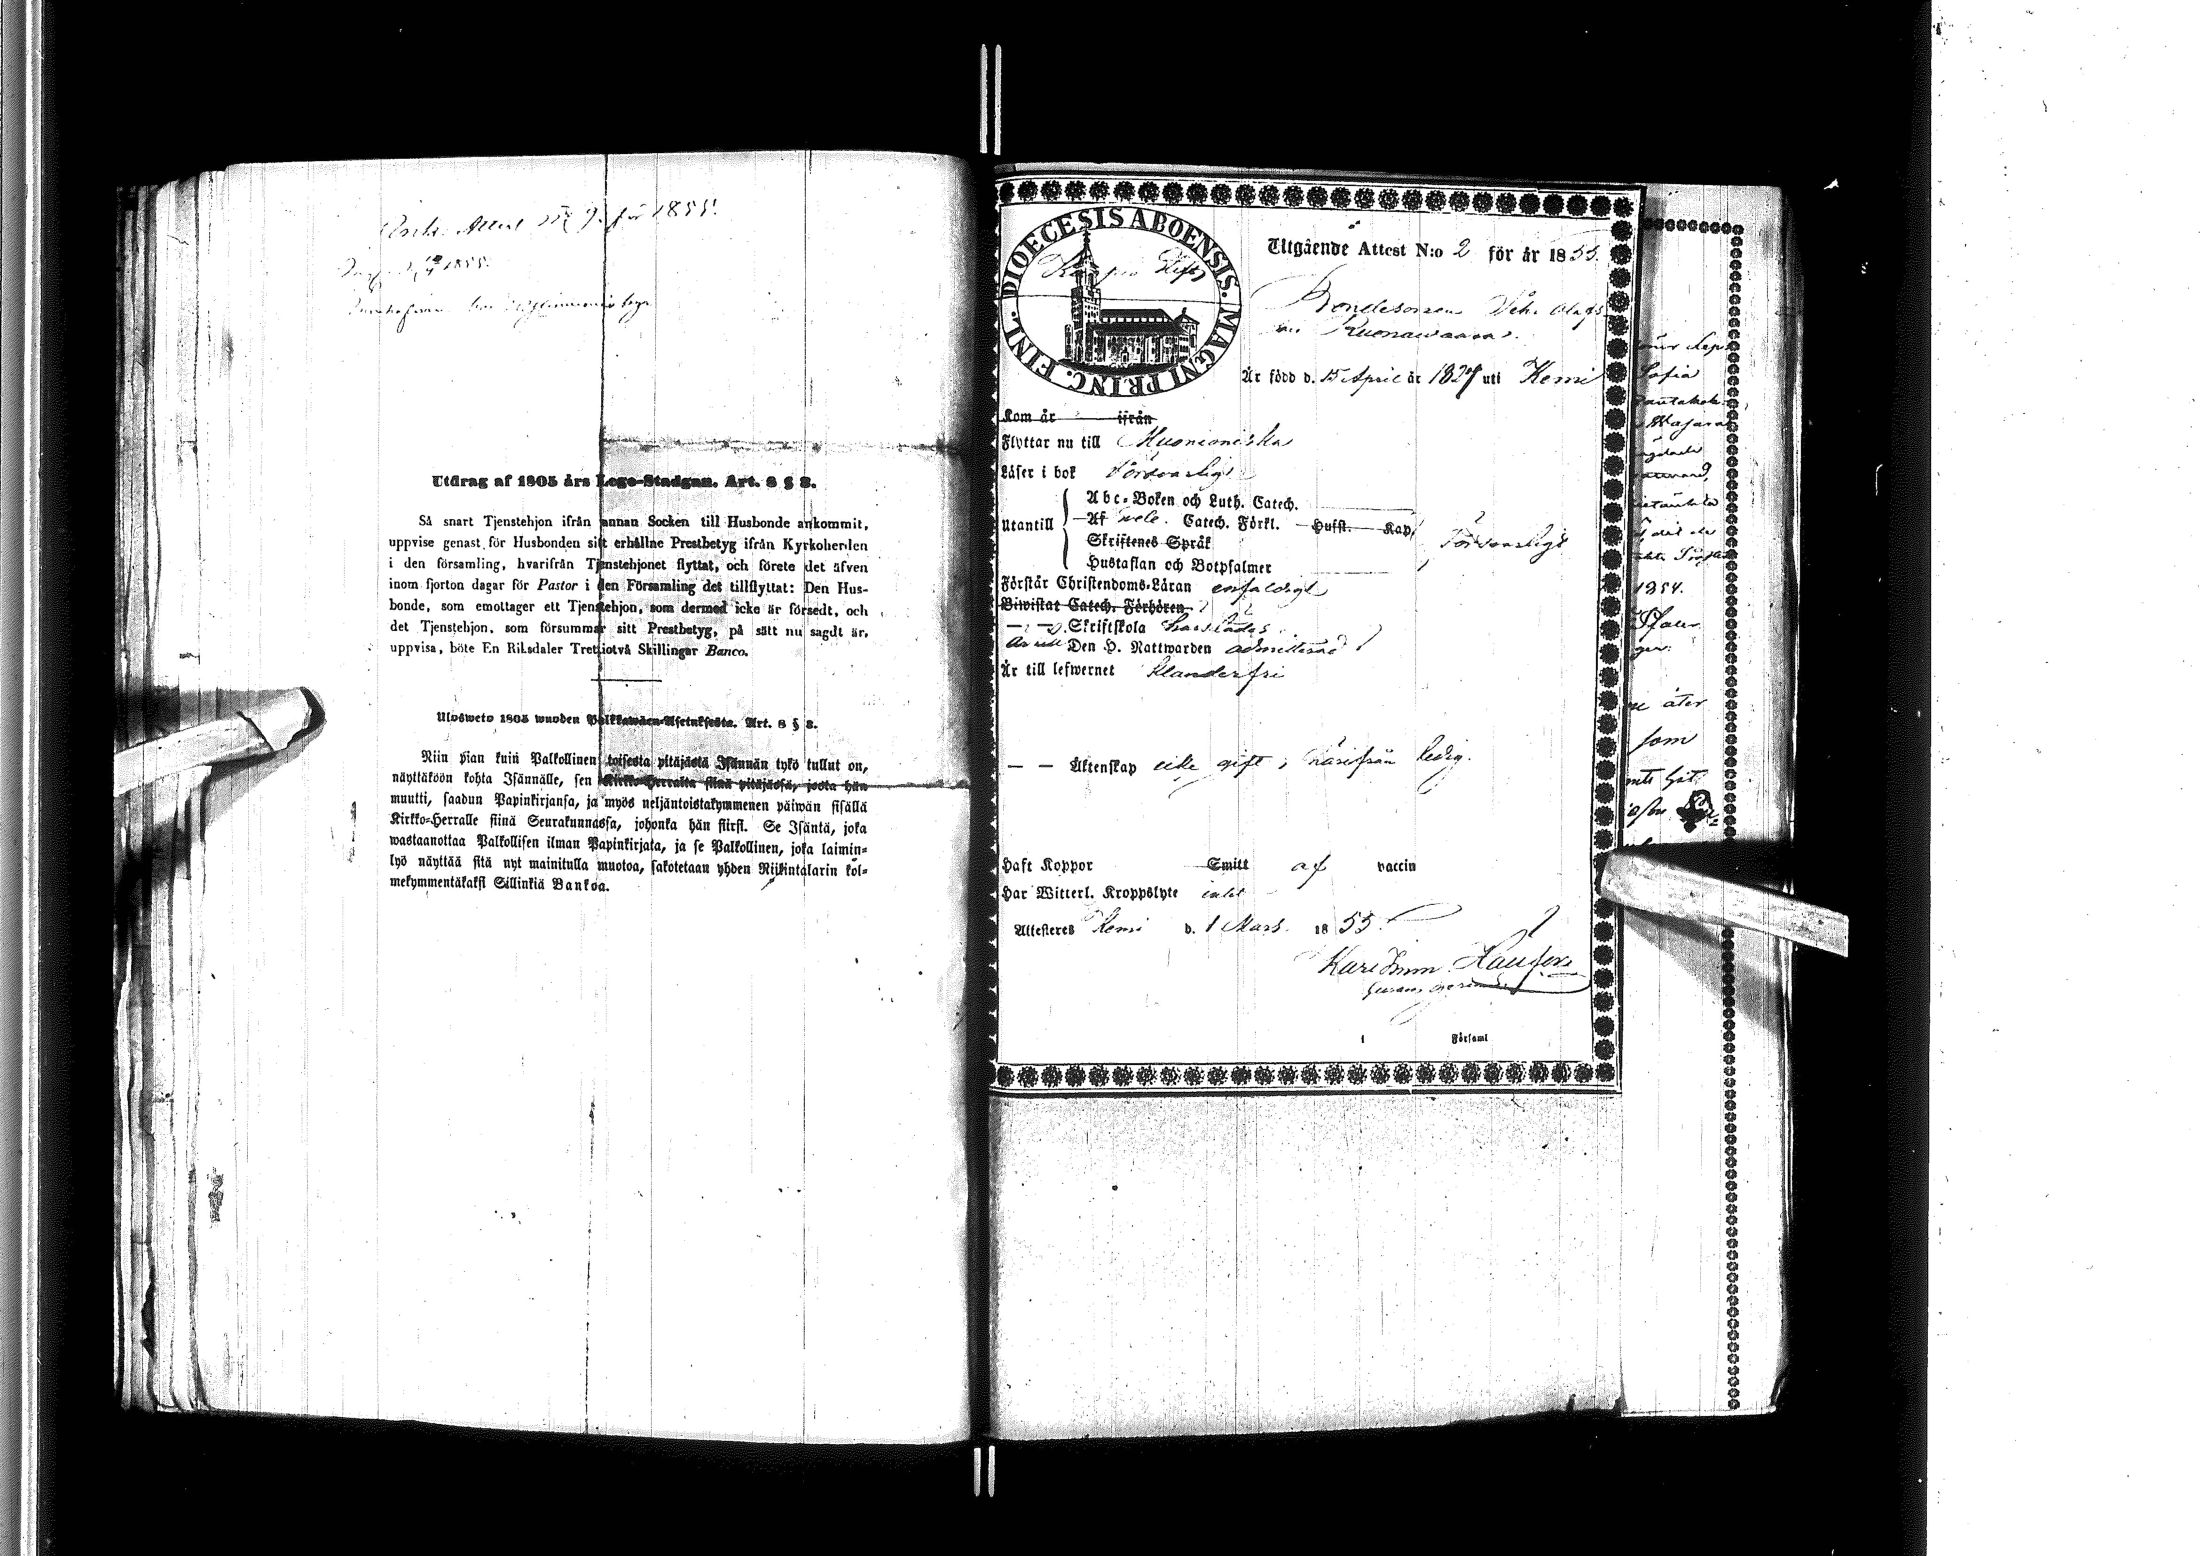 Attest No 9. för 1855.
1855.
Utdrag af 1805 års Lego-Stadgan. Art. 8 § 3.
Så snart Tjenstehjon ifrån annan Socken till Husbonde ankommit,
uppvise genast för Husbonden sitt erhållne Prestbetyg ifrån Kyrkoherden
i den församling, hvarifrån Tjenstehjonet flyttat, och förete det äfven
inom fjorton dagar för Pastor i den Församling det tillflyttat: Den Hus-
bonde, som emottager ett Tjenstehjon, som dermed icke är försedt, och
det Tjenstehjon, som försummar sitt Prestbetyg, på sätt nu sagdt är,
uppvisa, böte En Riksdaler Trettiotvå Skillingar Banco.
Ulosweto 1805 wuoden Palkkawäen-Asetuksesta. Art. 8 § 3.
Niin pian kuin Palkollinen toisesta pitäjästä Isännän tykö tullut on,
näyttäköön kohta Isännälle, sen Kirkko-Herralta siinä pitäjässä, josta hän
muutti, saadun Papinkirjansa, ja myös neljäntoistakymmenen päiwän sisällä
Kirkko-Herralle siinä Seurakunnassa, johonka hän siirsi. Se Isäntä, joka
wastaanottaa Palkollisen ilman Papinkirjata, ja se Palkollinen, joka laimin-
lyö näyttää sitä nyt mainitulla muotoa, sakotetaan yhden Riikintalarin kol-
mekymmentäkaksi Sillinkiä Bankoa.
DIOECESIS ABOENSIS. MAGNI PRINC. FINL.
Kuopio Stift
Utgående Attest N:o 2 för år 1855.
Bondesonen Joh. Olofs
Kuonawaara.
Är född d. 15 April år 1827 uti Kemi
Kom år ifrån
Flyttar nu till Muonioniska
Läser i bok Försvarligt
Utantill
Abc-Boken och Luth. Catech.
Af hela Catech. Förkl. Husst. Kap.
Skriftenes Språk
Hustaflan och Botpsalmer
Försvarligt
Förstår Christendoms-Läran enfaldigt
Biwistat Catech. Förhören
Skriftskola
Den H. Nattwarden admitterad
Är till lefwernet klanderfri
Äktenskap icke gift, härifrån ledig.
Haft Koppor Smitt af vaccin
Har Witterl. Kroppslyte intet
Attesteras Kemi d. 1 Mars 1855.
i Församl
Sofia
1854.
åter
som